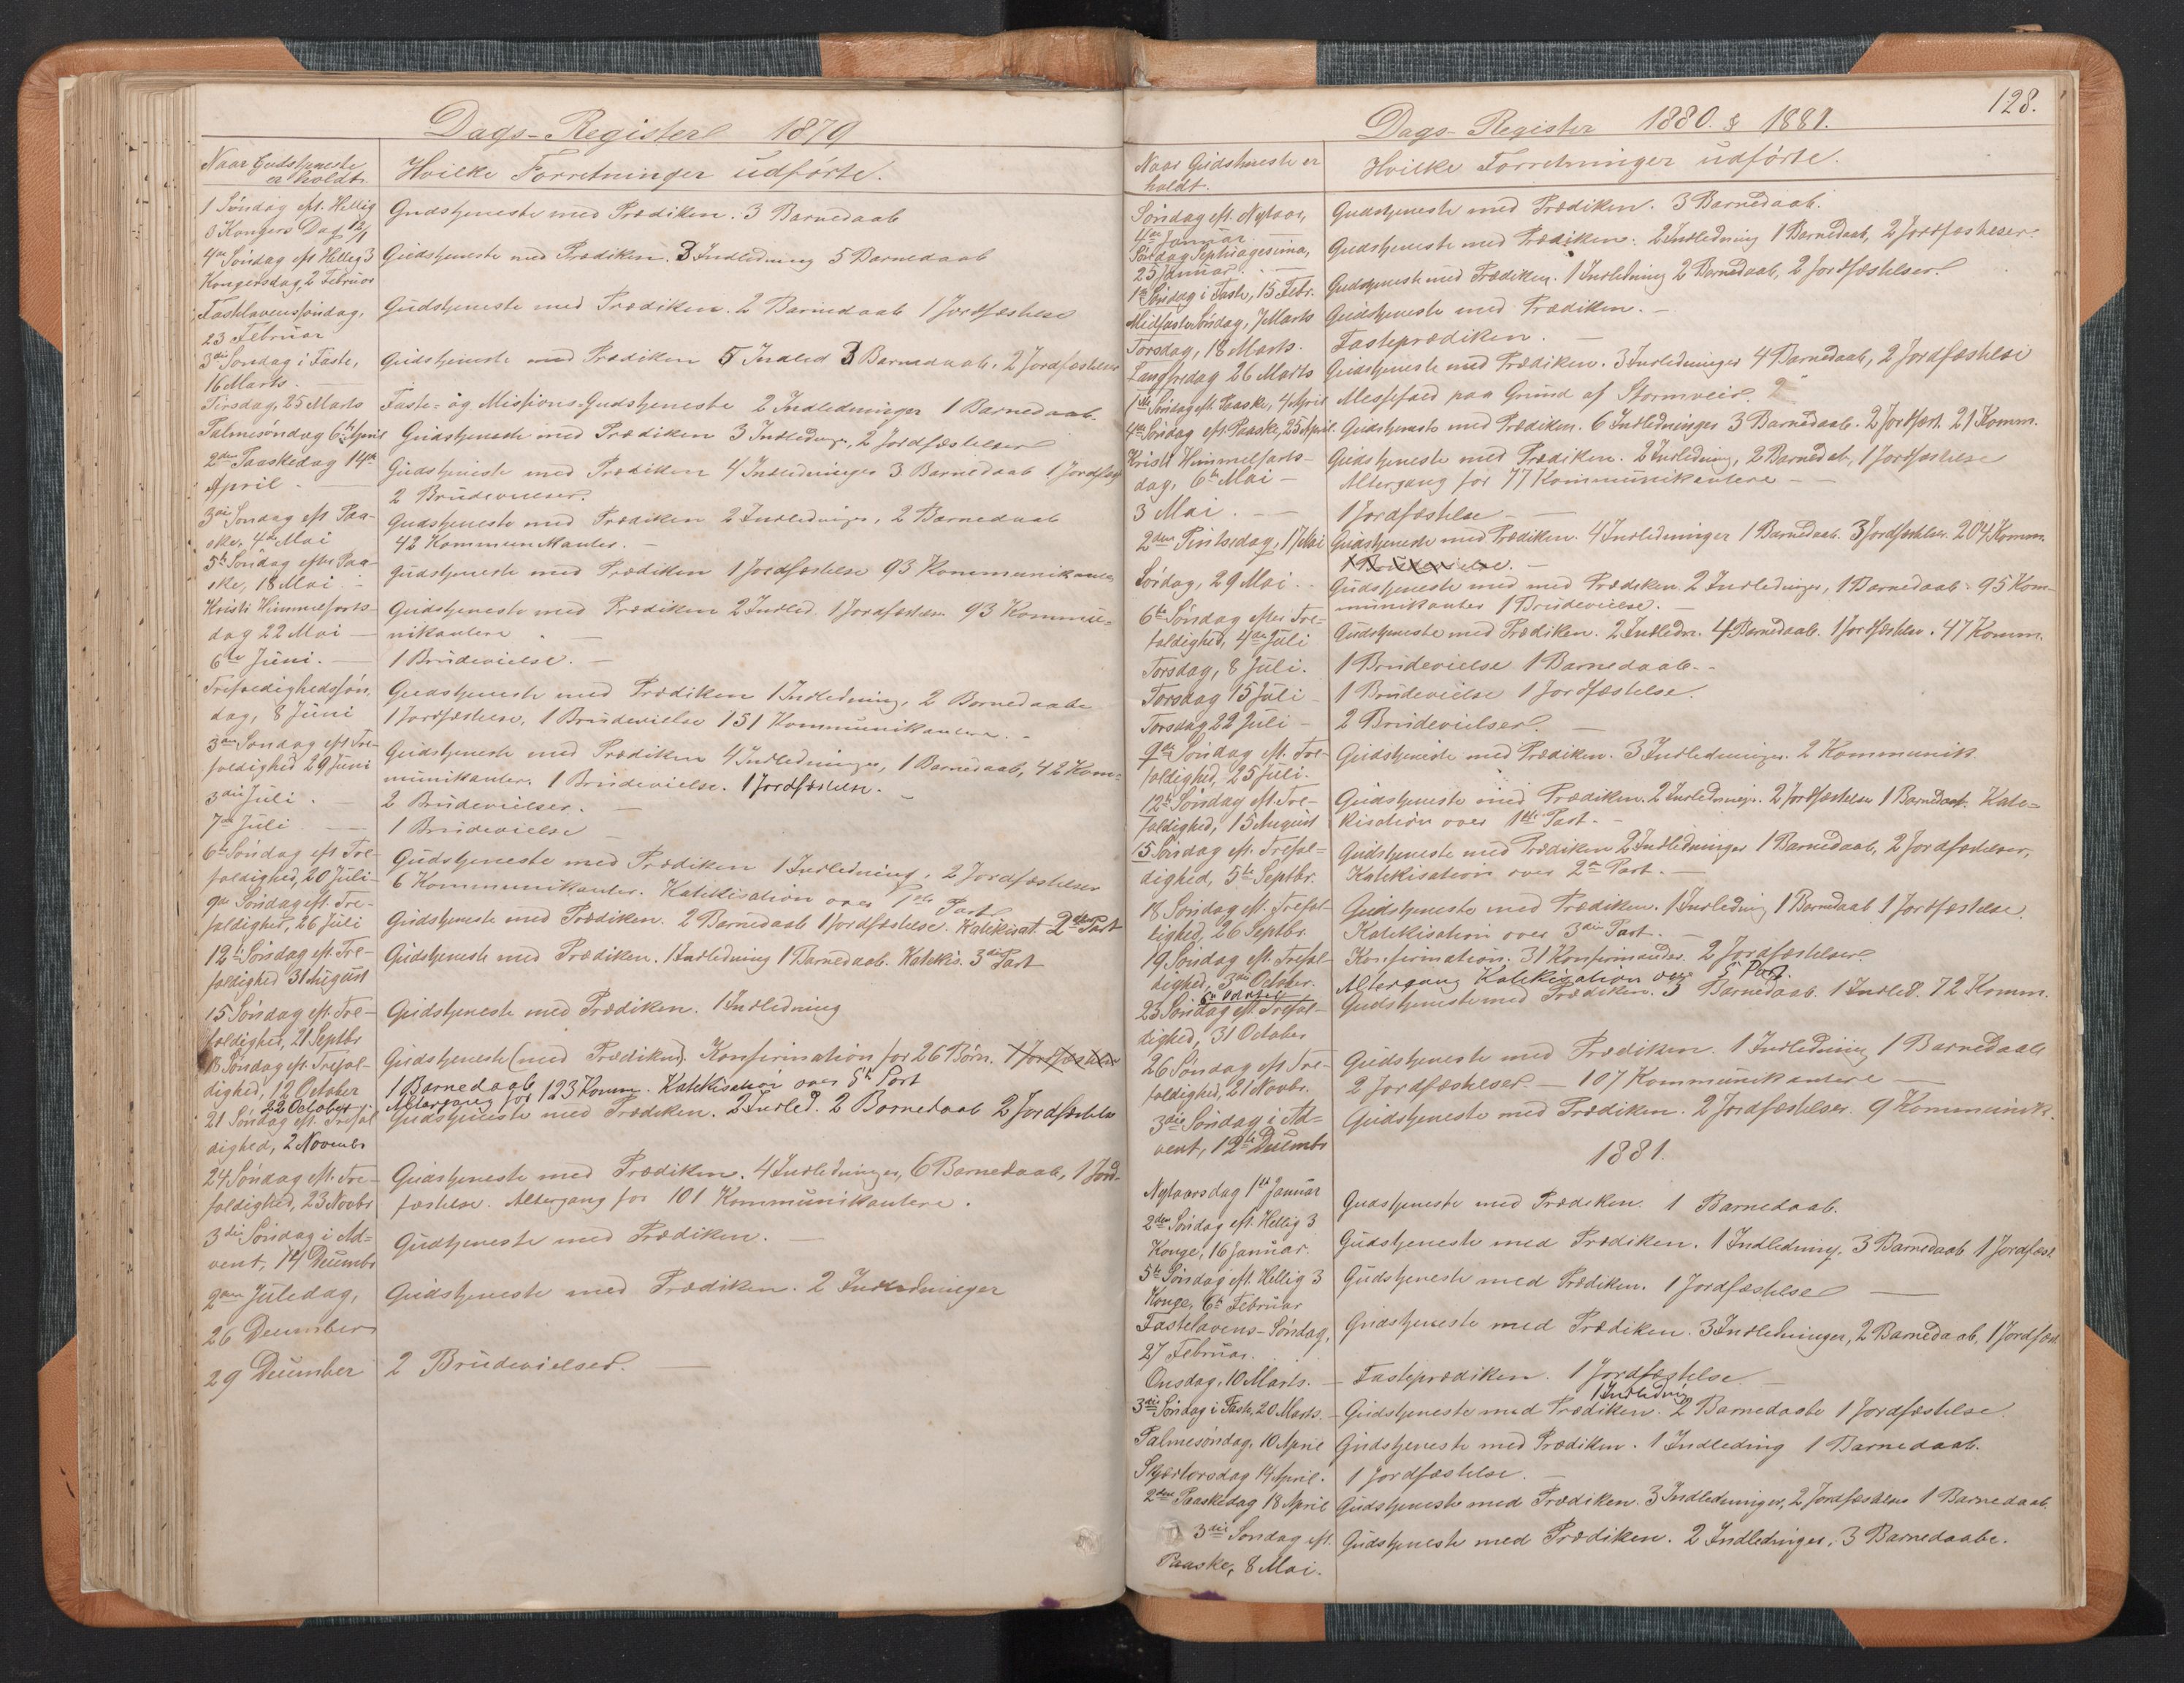 Dags-Register 1879
Naar Gudstjeneste
er holdt.
Hvilke Forretninger udførte.
1 Søndag eft. Hellig
3 Kongers Dag 12/1
Gudstjeneste med Prædiken. 3 Barnedaab
4de Søndag eft Hellig 3
Kongersdag, 2 Februar
Gudstjeneste med Prædiken. 3 Indledning 5 Barnedaab
Fastelavenssøndag,
23 Februar
Gudstjeneste med Prædiken. 2 Barnedaab 1 Jordfæstelse
3die Søndag i Faste,
16 Marts. —
Gudstjeneste med Prædiken 5 Indled 3 Barnedaab. 2 Jordfæstelser
Tirsdag, 25 Marts
Faste- og Missions-Gudstjeneste 2 Indledninger 1 Barnedaab
Palmesøndag 6te April
Gudstjeneste med Prædiken 3 Indledng., 2 Jordfæstelser
2den Paaskedag 14de
April —
Gudstjeneste med Prædiken 4 Indledninger 3 Barnedaab 1 Jordfæst
2 Brudevielser.
3die Søndag eft Paa-
ske, 4de Mai
Gudstjeneste med Prædiken 2 Indledninger, 2 Barnedaab
42 Kommunikanter. —
5te Søndag efter Paa-
ske, 18 Mai —
Gudstjeneste med Prædiken 1 Jordfæstelse 93 Kommunikanter
Kristi Himmelfarts-
dag 22 Mai —
Gudstjeneste med Prædiken 2 Indled. 1 Jordfæstelse. 93 Kommu-
nikantere
6te Juni. —
1 Brudevielse. —
Trefoldighedssøn
dag, 8 Juni
Gudstjeneste med Prædiken 1 Indledning, 2 Barnedaabe
1 Jordfæstelse, 1 Brudevielse 151 Kommunikantere. -
3die Søndag eft Tre-
foldighed 29 Juni
Gudstjeneste med Prædiken 4 Indledninger, 1 Barnedaab, 42 Kom-
munikanter. 1 Brudevielse. 1 Jordfæstelse. —
3die Juli. —
2 Brudevielser. —
7de Juli —
1 Brudevielse —
6te Søndag eft Tre-
foldighed, 20 Juli-
Gudstjeneste med Prædiken 1 Indledning, 2 Jordfæstelser
6 Kommunikanter. Katekisation over 1ste Part
9de Søndag eft. Tre-
foldighed, 26 Juli
Gudstjeneste med Prædiken. 2 Barnedaab 1 Jordfæstelse. Katekisat. 2den Part
12te Søndag eft. Tre-
foldighed 31 August
Gudstjeneste med Prædiken. 1 Indledning 1 Barnedaab. Katekis. 3die Part
15 Søndag eft. Tre-
foldighed, 21 Septbr
Gudstjeneste med Prædiken. 1 Indledning
18 Søndag eft. Trefol-
dighed, 12 October
Gudstjeneste (med Prædiken). Konfirmation for 26 Børn. 1 Jordfæstelse
1 Barnedaab
22 October
Altergang for 123 Komm. Katekisation over 5te Part
21 Søndag eft. Trefol
dighed, 2 Novembr
Gudstjeneste med Prædiken. 2 Indled. 2 Barnedaab 2 Jordfæstelse
24 Søndag eft. Tre-
foldighed, 23 Novbr
Gudstjeneste med Prædiken. 4 Indledninger, 6 Barnedaab, 1 Jord-
fæstelse. Altergang for 101 Kommunikantere.
3die Søndag i Ad-
vent, 14 Decembr
Gudstjeneste med Prædiken. —
2den Juledag,
26 December
Gudstjeneste med Prædiken. 2 Indledninger
29 December
2 Brudevielser. —
128.
Dags-Register 1880. & 1881.
Naar Gudstjeneste er
holdt.
Hvilke Forretninger udførte.
Søndag eft. Nytaar,
4de Januar —
Gudstjeneste med Prædiken. 3 Barnedaab.
Søndag Septuagesima,
25 Januar. —
Gudstjeneste med Prædiken. 2 Indledning 1 Barnedaab, 2 Jordfæstelser.
1ste Søndag i Faste, 15 Febr.
Gudstjeneste med Prædiken. 1 Indledning 2 Barnedaab, 2 Jordfæstelser.
Midfastesøndag, 7 Marts
Gudstjeneste med Prædiken. —
Torsdag, 18 Marts.
Fasteprædiken. —
Langfredag 26 Marts
Gudstjeneste med Prædiken. 3 Indledninger 4 Barnedaab, 2 Jordfæstelser
1ste Søndag eft. Paaske, 4 April
Messefald paa Grund af Stormveir.
4de Søndag eft Paaske, 25 April
Gudstjeneste med Prædiken. 6 Indledninger 3 Barnedaab. 2 Jordfæst. 21 Komm.
Kristi Himmelfarts-
dag, 6te Mai —
Gudstjeneste med Prædiken. 2 Indledning, 2 Barnedab, 1 Jordfæstelse
Altergang for 77 Kommunikantere —
3 Mai. —
1 Jordfæstelse —
2den Pintsedag, 17 Mai
Gudstjeneste med Prædiken. 4 Indledninger 1 Barnedaab. 3 Jordfæstelser. 204 Komm.
1 Brudevielse. —
Lørdag, 29 Mai. -
Gudstjeneste med med Prædiken. 2 Indledninger, 1 Barnedaab. 95 Kom-
munikanter 1 Brudevielse. —
6te Søndag efter Tre-
foldighed, 4de Juli
Gudstjeneste med Prædiken. 2 Indledn. 4 Barnedaab. 1 Jordfæstelse. 47 Komm.
Torsdag, 8 Juli.
1 Brudevielse 1 Barnedaab. -
Torsdag 15 Juli
1 Brudevielse 1 Jordfæstelse.
Torsdag 22 Juli -
2 Brudevielser. —
9de Søndag eft. Tre-
foldighed, 25 Juli.
Gudstjeneste med Prædiken. 3 Indledninger. 2 Kommunik.
12te Søndag eft. Tre-
foldighed, 15 August
Gudstjeneste med Prædiken. 2 Indledninger. 2 Jordfæstelse 1 Barnedaab. Kate-
kisation over 1ste Part. -
15 Søndag eft. Trefol-
dighed, 5te Septbr.
Gudstjeneste med Prædiken 2 Indledninger 1 Barnedaab, 2 Jordfæstelser,
Katekisation over 2den Part. —
18 Søndag eft. Trefol-
dighed, 26 Septbr.
Gudstjeneste med Prædiken. 1 Indledning 1 Barnedaab 1 Jordfæstelse.
Katekisation over 3die Part. —
19 Søndag eft. Trefol-
dighed, 3die October.
Konfirmation. 31 Konfirmander. 2 Jordfæstelser
6te October
Altergang Katekisation over 5 Part.
23 Søndag eft. Trefol-
dighed, 31 October
Gudstjeneste med Prædiken. 3 Barnedaab. 1 Indled. 72 Komm.
26 Søndag eft Tre-
foldighed, 21 Novbr.
Gudstjeneste med Prædiken. 1 Indledning 1 Barnedaab
2 Jordfæstelser. — 107 Kommunikantere —
3die Søndag i Ad-
vent, 12te Decembr
Gudstjeneste med Prædiken. 2 Jordfæstelser. 9 Kommunik.
1881.
Nytaarsdag 1ste Januar
Gudstjeneste med Prædiken. 1 Barnedaab.
2den Søndag eft. Hellig 3
Konge, 16 Januar.
Gudstjeneste med Prædiken. 1 Indledning. 3 Barnedaab 1 Jordfæst
5te Søndag eft. Hellig 3
Konge, 6te Februar
Gudstjeneste med Prædiken. 1 Jordfæstelse —
Fastelavens-Søndag,
27 Februar.
Gudstjeneste med Prædiken. 3 Indledninger, 2 Barnedaab, 1 Jordfæst
Onsdag, 10 Marts. —
Fasteprædiken. 1 Jordfæstelse —
3die Søndag i Faste, 20 Marts. —
1 Indledning
Gudstjeneste med Prædiken. 2 Barnedaabe 1 Jordfæstelse.
Palmesøndag, 10 April
Gudstjeneste med Prædiken. 1 Indleding 1 Barnedaab.
Skjærtorsdag 14 April.
1 Jordfæstelse. —
2den Paaskedag 18 April
Gudstjeneste med Prædiken. 3 Indledninger, 2 Jordfæstelser 1 Barnedaab.
3die Søndag eft.
Paaske, 8 Mai.
Gudstjeneste med Prædiken. 2 Indledninger. 3 Barnedaabe.